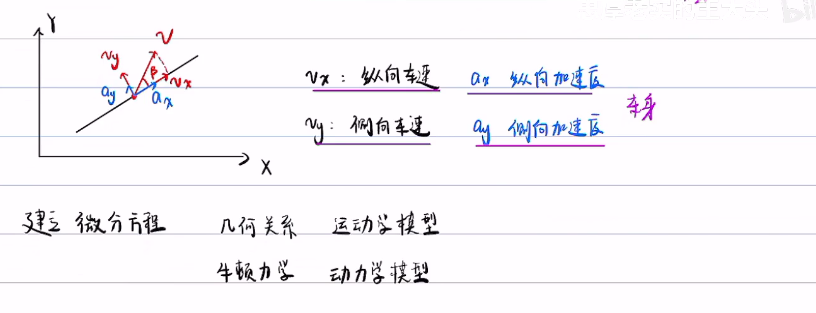 Y
V
vy
β
vx
ay
ax
X
vx: 纵向车速 ax 纵向加速度
vy: 侧向车速 ay 侧向加速度
车身
建立 微分方程 几何关系 运动学模型
牛顿力学 动力学模型